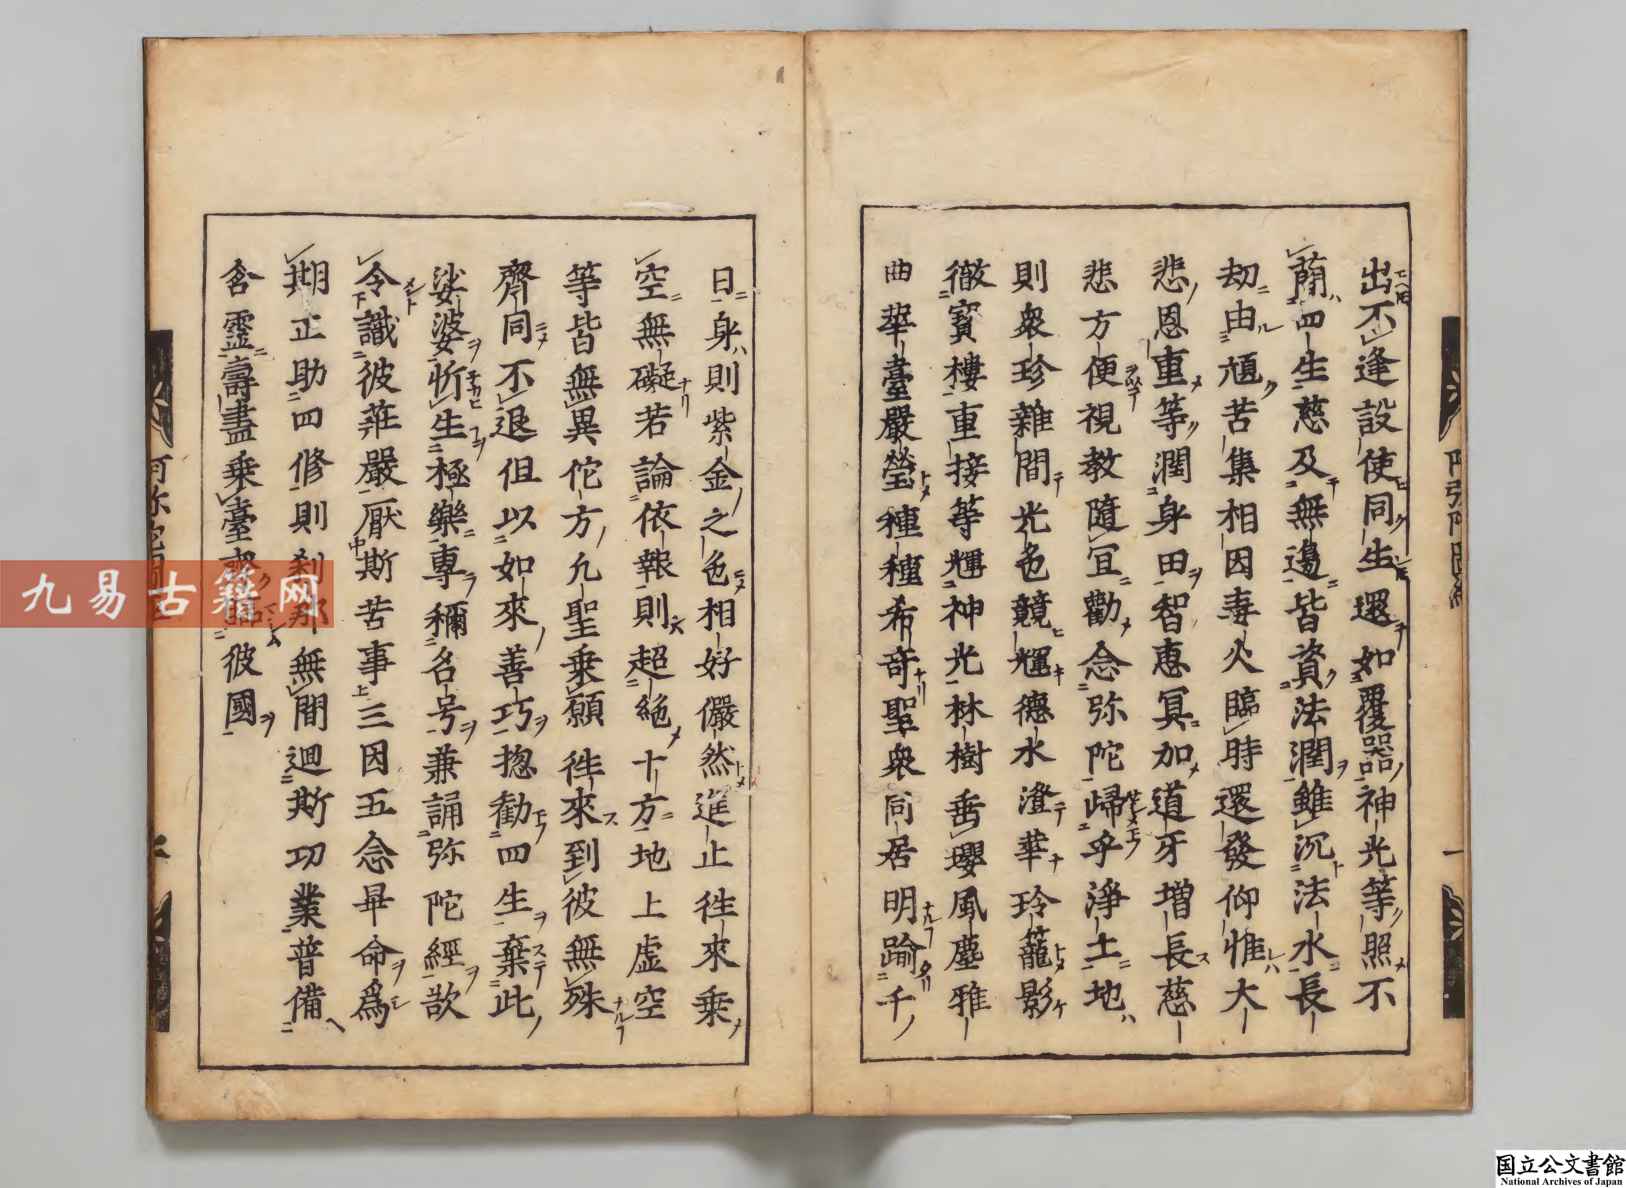 出不逢設使同生還如覆器神光等照不
簡四生慈及無邊皆資法潤雖沉法水長
劫由頑苦集相因毒火臨時還發仰惟大
悲恩重等潤身田智惠冥加道牙增長慈
悲方便視教隨宜勸念弥陀歸乎淨土地
則衆珍雜間光色競輝德水澄華玲籠影
徹寳樓重接等輝神光林樹垂瓔風塵雅
曲華臺嚴瑩種種希奇聖衆同居明踰千
日身則紫金之色相好儼然進止徃來乗
空無礙若論依報則超絶十方地上虚空
等皆無異佗方凢聖乗願徃來到彼無殊
齊同不退但以如來善巧揔勸四生棄此
娑婆忻生極樂專稱名号兼誦弥陀經欲
令識彼莊嚴厭斯苦事三因五念畢命爲
期正助四修則刹那無間迴斯功業普備
含靈壽盡乗臺齊臨彼國
九易古籍网
国立公文書館
National Archives of Japan